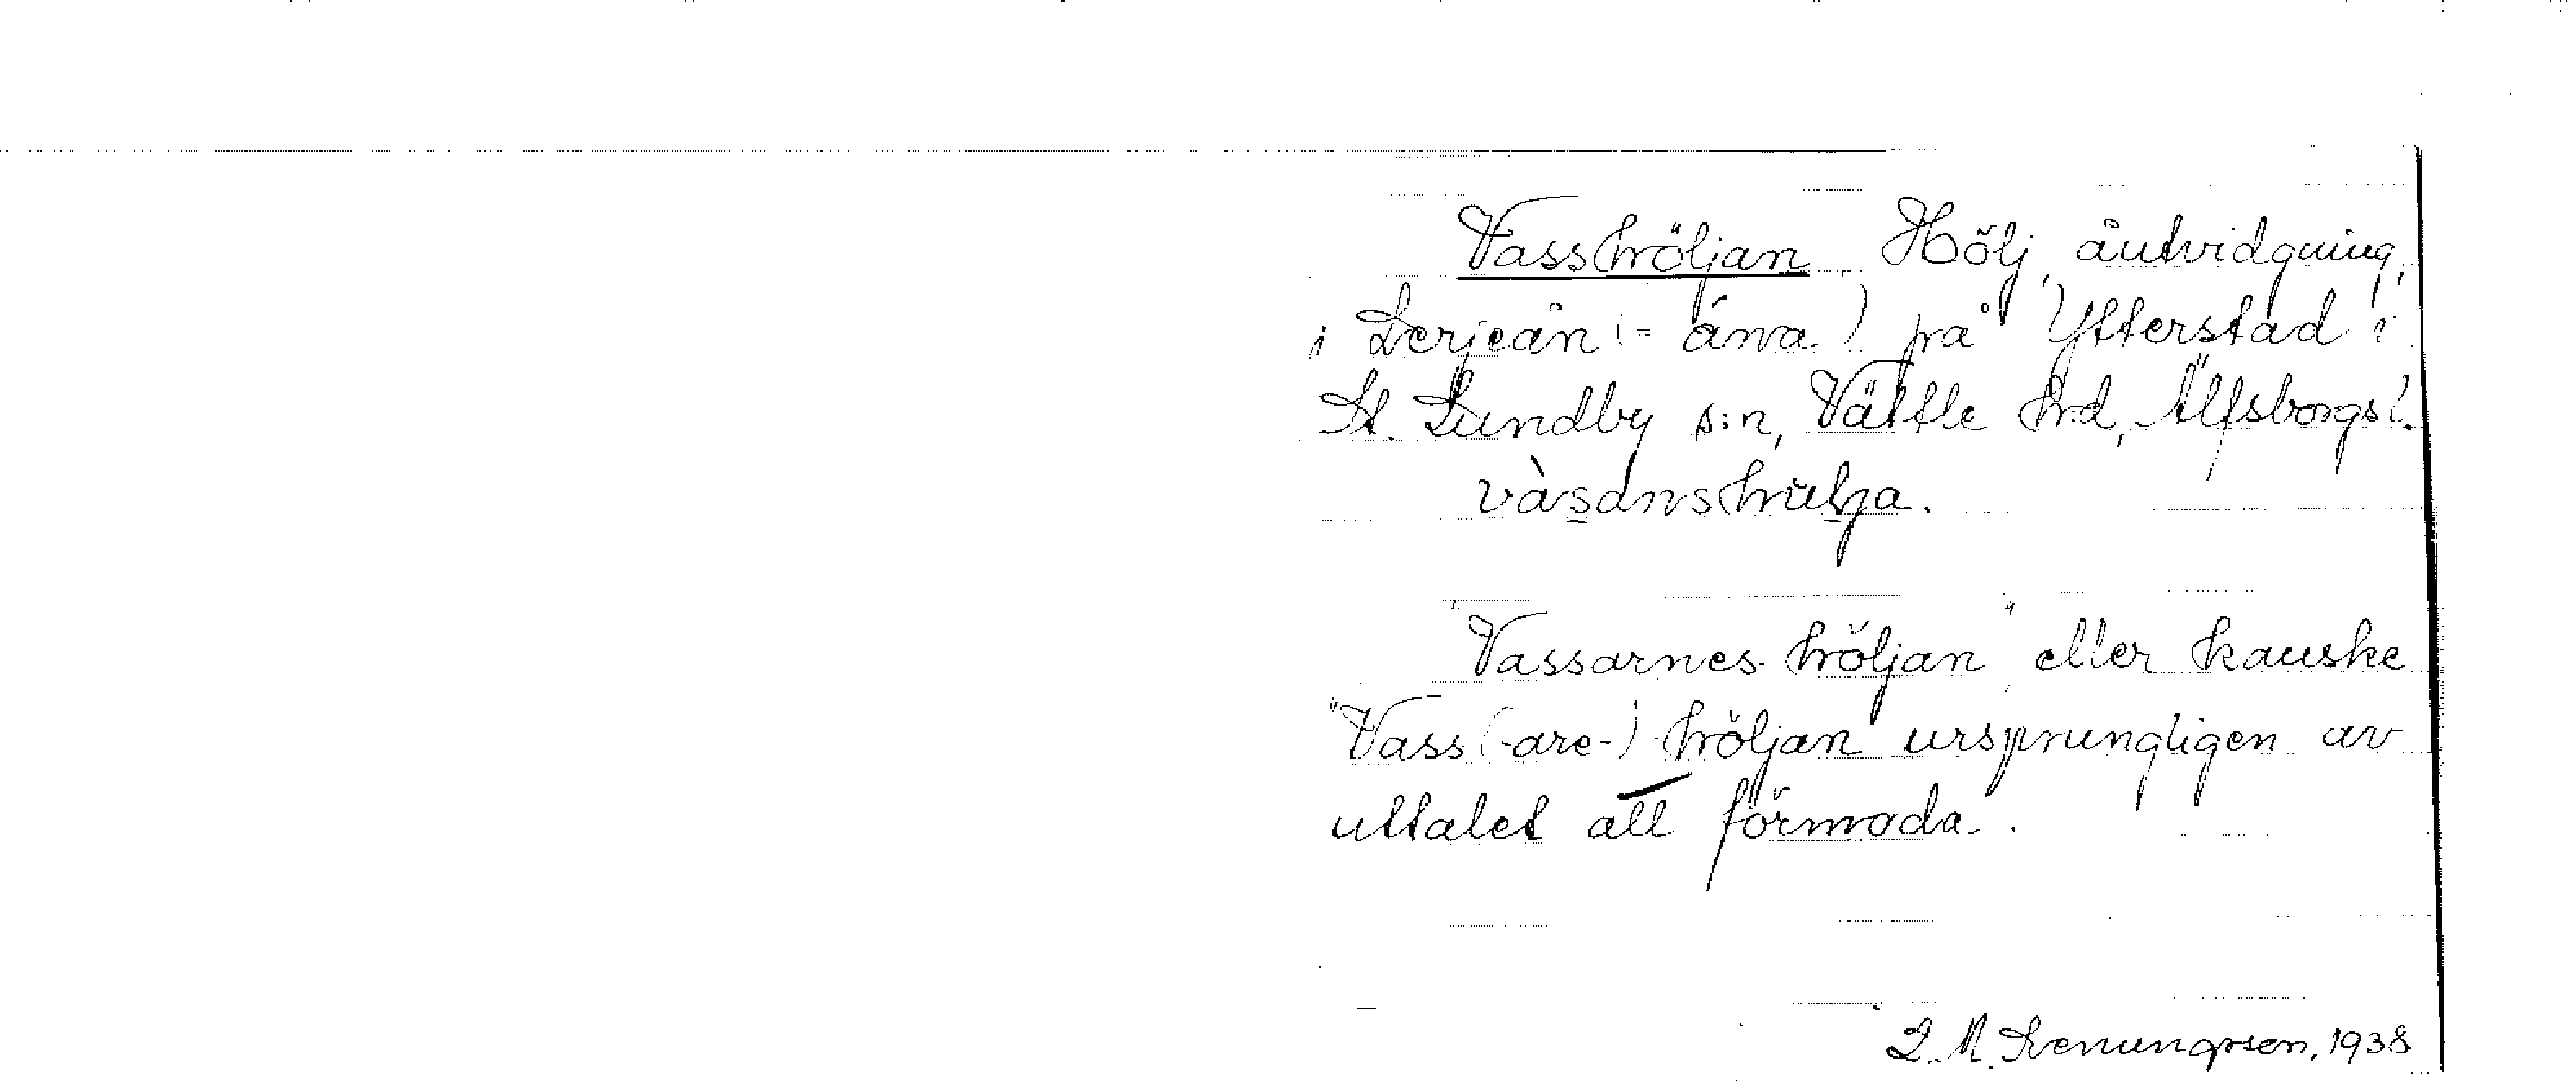 Vasshöljan. Hölj, åutvidgning,
i Lerjeån (= ána) på Ytterstad i
St. Lundby s:n, Vättle hd, Älfsborgs l.
vàsanshulja.
"Vassarnes-höljan" eller kanske
"Vass(-are-)höljan" ursprungligen av
uttalet att förmoda.
1938